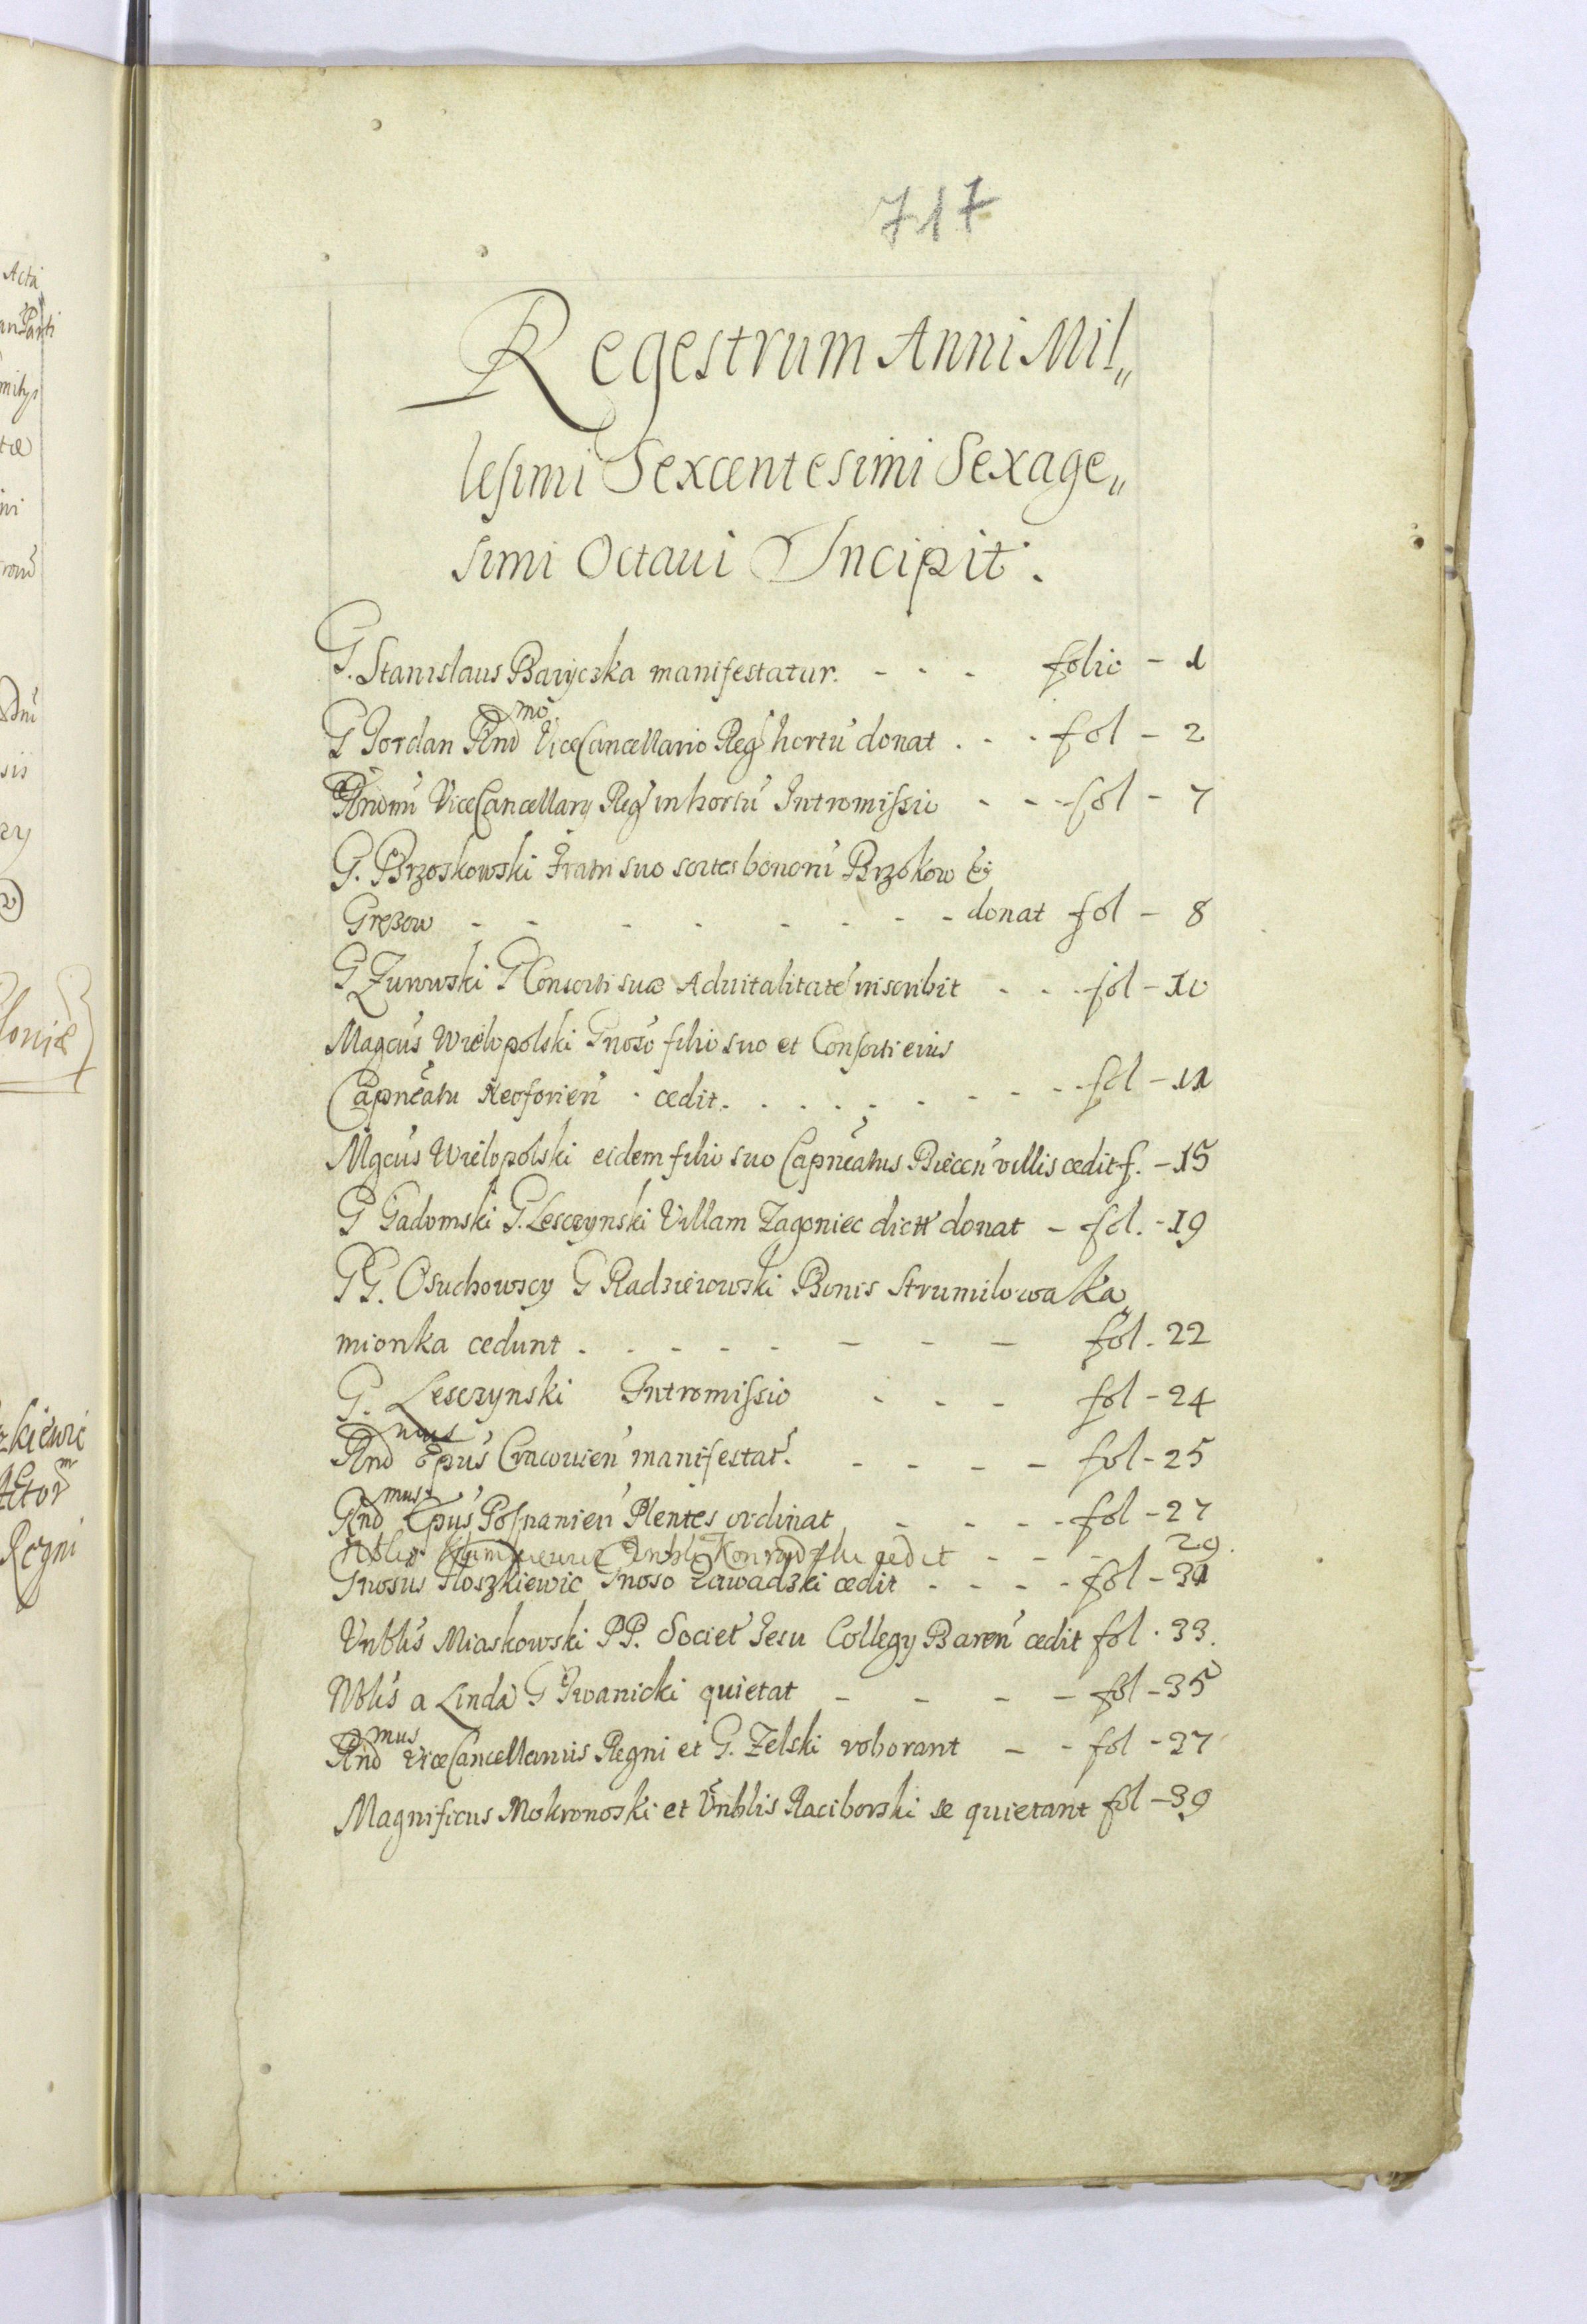 717
Regestrum Anni Mil„
lesimi Sexcentesimi Sexage„
simi Octaui Incipit.
G. Stanislaus Baryczka manifestatur. - - - folio - 1
G Jordan Rnd mo ViceCancellario Reg hortu donat . - . fol - 2
ViceCancellarij Reg in hortu Intromissio - - - fol - 7
G. Brzoskowski Fratri suo sortes bonoru Brzokow &
Gręzow - - - - - - - - donat fol - 8
G Zurowski G Consorti suæ Aduitalitate inscribit - - - fol - 10
Magcus Wielopolski Gnoso filio suo et Consorti eius
Capneatu Neoforien . cedit. . . . . . - - - - fol - 11
Mgcus Wielopolski eidem filio suo Capneatus Biecen villis cedit f. - 15
G Gadomski G. Lesczynski Villam Zagoniec dict donat - fol. - 19
GG. Osuchowscy G Radzieiowski Bonis Strumilowa Ka„
mionka cedunt . . - - - - - - fol . 22
G. Lesczynski Intromissio - - - fol - 24
Rnd mus Epus Cracouien manifestat. - - - - fol - 25
Rnd mus Epus Posnanien Plentes ordinat - - - - fol - 27
cedit - - - 29.
Gnosus Hoszkiewic Gnoso Zawadzki cedit . - - - fol - 31
Vnblis Miaskowski PP. Societ Jesu Collegij Baren cedit fol . 33.
Nblis a Linda G Iwanicki quietat - - - - fol - 35
Rnd mus ViceCancellarius Regni et G. Zelski roborant - - fol - 37
Magnificus Mokronoski et Vnblis Raciborski se quietant fol - 39